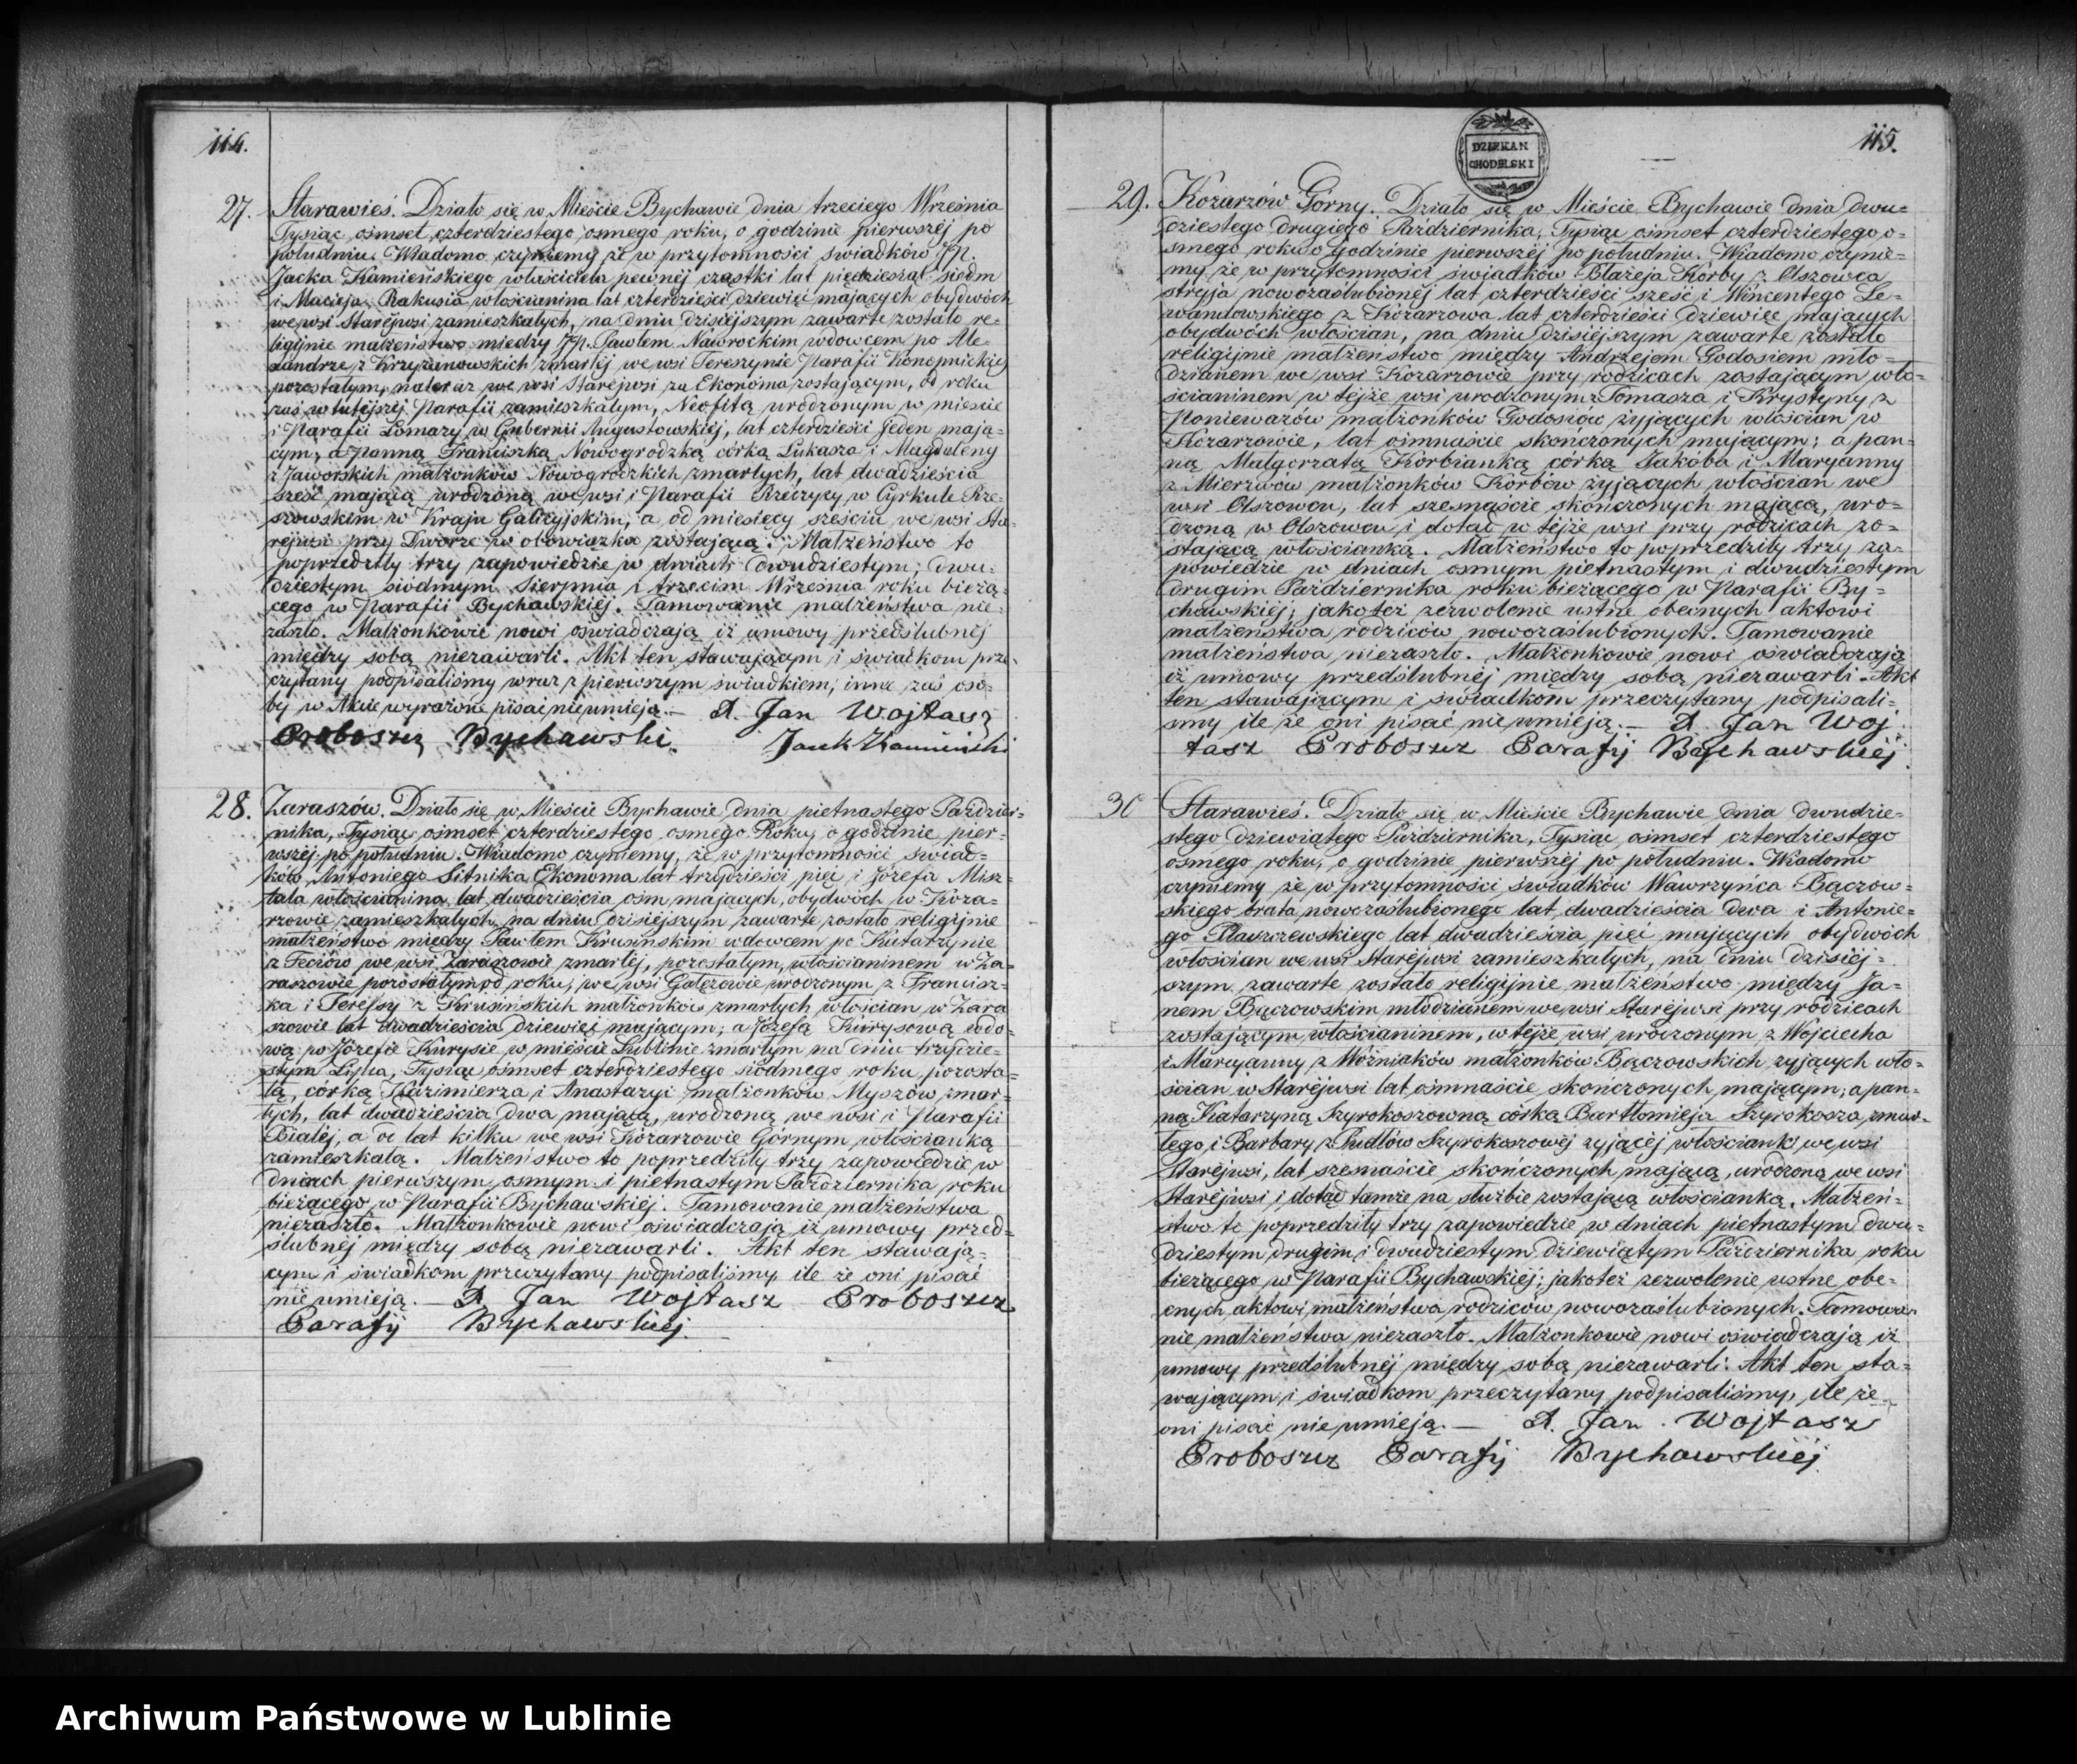 114.
27. Starawieś. Działo się w Mieście Bychawie dnia trzeciego Września
Tysiąc ośmset czterdziestego osmego roku, o godzinie pierwszéj po
południu. Wiadomo czyniemy że w przytomności świadków JP.
Jacka Kamieńskiego właściciela pewnéj cząstki lat pięćdziesiąt siedm
i Macieja Rakusia włościanina lat czterdzieści dziewięć maiących obydwóch
we wsi Staréjwsi zamieszkałych, na dniu dzisiéjszym zawarte zostało re-
ligijnie małżeństwo między JP. Pawłem Nawrockim wdowcem po Ale-
xandrze z Krzyżanowskich zmarłéj we wsi Tereszynie Parafii Konopnickiéj
pozostałym, na teraz we wsi Staréjwsi za Ekonoma zostającym, od roku
zaś w tutéjszéj Parafii zamieszkałym, Neofitą urodzonym w mieście
i Parafii Łomazy w Gubernii Augustowskiéj, lat czterdzieści jeden mają-
cym; a Panną Franciszką Nowogrodzką córką Łukasza i Magdaleny
z Jaworskich małżonków Nowogrodzkich zmarłych, lat dwadzieścia
sześć mającą urodzoną we wsi i Parafii Rzeczycy w Cyrkule Rze-
szowskim w Kraju Galicyjskim, a od miesięcy sześciu we wsi Sta-
réjwsi przy Dworze w obowiązku zostającą. Małżeństwo to
poprzedziły trzy zapowiedzie w dniach dwudziestym, dwu-
dziestym siódmym Sierpnia i trzecim Września roku bieżą-
cego w Parafii Bychawskiéj. Tamowanie małżeństwa nie
zaszło. Małżonkowie nowi oświadczają iż umowy przedślubnéj
między sobą niezawarli. Akt ten stawającym i świadkom prze-
czytany podpisaliśmy wraz z pierwszym świadkiem, inne zaś oso-
by w Akcie wyrażone pisać nie umieją. — X. Jan Wojtasz
Proboszcz Bychawski. Jacek Kamieński
28. Zaraszów. Działo się w Mieście Bychawie dnia piętnastego Paździer-
nika, Tysiąc ośmset czterdziestego osmego Roku, o godzinie pier-
wszéj po południu. Wiadomo czyniemy, że w przytomności świad-
ków Antoniego Sitnika Ekonoma lat trzydzieści pięć i Józefa Misz-
tala włościanina lat dwadzieścia ośm mających, obydwóch w Koza-
rzowie zamieszkałych, na dniu dzisiéjszym zawarte zostało religijnie
małżeństwo między Pawłem Krusińskim wdowcem po Katarzynie
z Feciów we wsi Zaraszowie zmarłéj, pozostałym, włościaninem w Za-
raszowie pozostałym od roku, we wsi Gałęzowie urodzonym z Francisz-
ka i Teressy z Krusińskich małżonków zmarłych włościan w Zara
szowie lat dwadzieścia dziewięć mającym; a Józefą Kurysową wdo-
wą po Józefie Kurysie w mieście Lublinie zmarłym na dniu trzydzie-
stym Lipca, Tysiąc ośmset czterdziestego siódmego roku, pozosta-
łą, córką Kazimierza i Anastazyi małżonków Myszów zmar-
łych, lat dwadzieścia dwa mającą, urodzoną we wsi i Parafii
Białéj, a od lat kilku we wsi Kozarzowie Górnym włościanką
zamieszkałą. Małżeństwo to poprzedziły trzy zapowiedzie w
dniach pierwszym osmym i piętnastym Października roku
bieżącego w Parafii Bychawskiéj. Tamowanie małżeństwa
niezaszło. Małżonkowie nowi oświadczają iż umowy przed-
ślubnéj między sobą niezawarli. Akt ten stawają-
cym i świadkom przeczytany podpisaliśmy, ile że oni pisać
nie umieją. — X. Jan Wojtasz Proboszcz
Parafij Bychawskiej
DZIEKAN
CHODELSKI
115.
29. Kozarzów Gorny. Działo się w Mieście Bychawie dnia dwu-
dziestego drugiego Października, Tysiąc ośmset czterdziestego o-
smego roku o godzinie pierwszéj po południu. Wiadomo czynie-
my że w przytomności świadków Błażeja Korby z Olszowca
stryja nowozaślubionéj lat czterdzieści sześć i Wincentego Le-
wandowskiego z Kozarzowa lat czterdzieści dziewięć mających
obydwóch włościan, na dniu dzisiéjszym zawarte zostało
religijnie małżeństwo między Andrzejem Godosiem mło-
dzianem we wsi Kozarzowie przy rodzicach zostającym wło-
ścianinem w tejże wsi urodzonym z Tomasza i Krystyny z
Poniewazów małżonków Godosiów żyjących włościan w
Kozarzowie, lat ośmnaście skończonych mającym; a pan-
ną Małgorzatą Korbianką córką Jakóba i Maryanny
z Mierzwów małżonków Korbów żyjących włościan we
wsi Olszowcu, lat szesnaście skończonych mającą, uro-
dzoną w Olszowcu i dotąd w tejże wsi przy rodzicach zo-
stającą włościanką. Małżeństwo to poprzedziły trzy za-
powiedzie w dniach osmym piętnastym i dwudziestym
drugim Października roku bieżącego w Parafii By-
chawskiéj; jakoteż zezwolenie ustne obecnych aktowi
małżeństwa rodziców nowozaślubionych. Tamowanie
małżeństwa niezaszło. Małżonkowie nowi oświadczają
iż umowy przedślubnéj między sobą niezawarli. Akt
ten stawającym i świadkom przeczytany podpisali-
śmy ile że oni pisać nie umieją. — X. Jan Woj
tasz Proboszcz Parafij Bychawskiéj
30 Starawieś. Działo się w Mieście Bychawie dnia dwudzie-
stego dziewiątego Października, Tysiąc ośmset czterdziestego
osmego roku, o godzinie pierwszéj po południu. Wiadomo
czyniemy że w przytomności świadków Wawrzyńca Bączow-
skiego brata nowozaślubionego lat dwadzieścia dwa i Antonie-
go Płaszczewskiego lat dwadzieścia pięć mających obydwóch
włościan we wsi Staréjwsi zamieszkałych, na dniu dzisiéj-
szym zawarte zostało religijnie małżeństwo między Ja-
nem Bączowskim młodzianem we wsi Staréjwsi przy rodzicach
zostającym włościaninem, w tejże wsi urodzonym z Wojciecha
i Maryanny z Woźniaków małżonków Bączowskich żyjących wło-
ścian w Staréjwsi lat ośmnaście skończonych mającym; a pan-
ną Katarzyną Szyrokoszowną córką Bartłomieja Szyrokosza zmar-
łego i Barbary z Pudłów Szyrokoszowéj żyjącéj włościanki we wsi
Staréjwsi, lat szesnaście skończonych mającą, urodzoną we wsi
Staréjwsi i dotąd tamże na służbie zostającą włościanką. Małżeń-
stwo to poprzedziły trzy zapowiedzie w dniach piętnastym dwu-
dziestym drugim i dwudziestym dziewiątym Października roku
bieżącego w Parafii Bychawskiéj; jakoteż zezwolenie ustne obe-
cnych aktowi małżeństwa rodziców nowozaślubionych. Tamowa-
nie małżeństwa niezaszło. Małżonkowie nowi oświadczają iż
umowy przedślubnéj między sobą niezawarli. Akt ten sta-
wającym i świadkom przeczytany podpisaliśmy, ile że
oni pisać nie umieją. — X. Jan Wojtasz
Proboszcz Parafij Bychawskiéj
Archiwum Państwowe w Lublinie